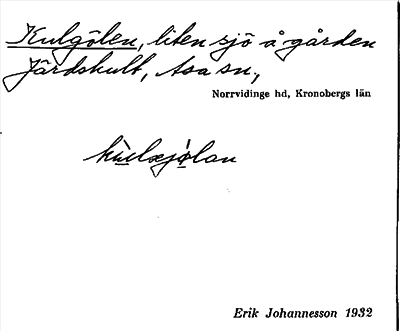 Kulgölen, liten sjö å gården
Järdskult, Asa sn.,
Norrvidinge hd, Kronobergs län
Erik Johannesson 1932